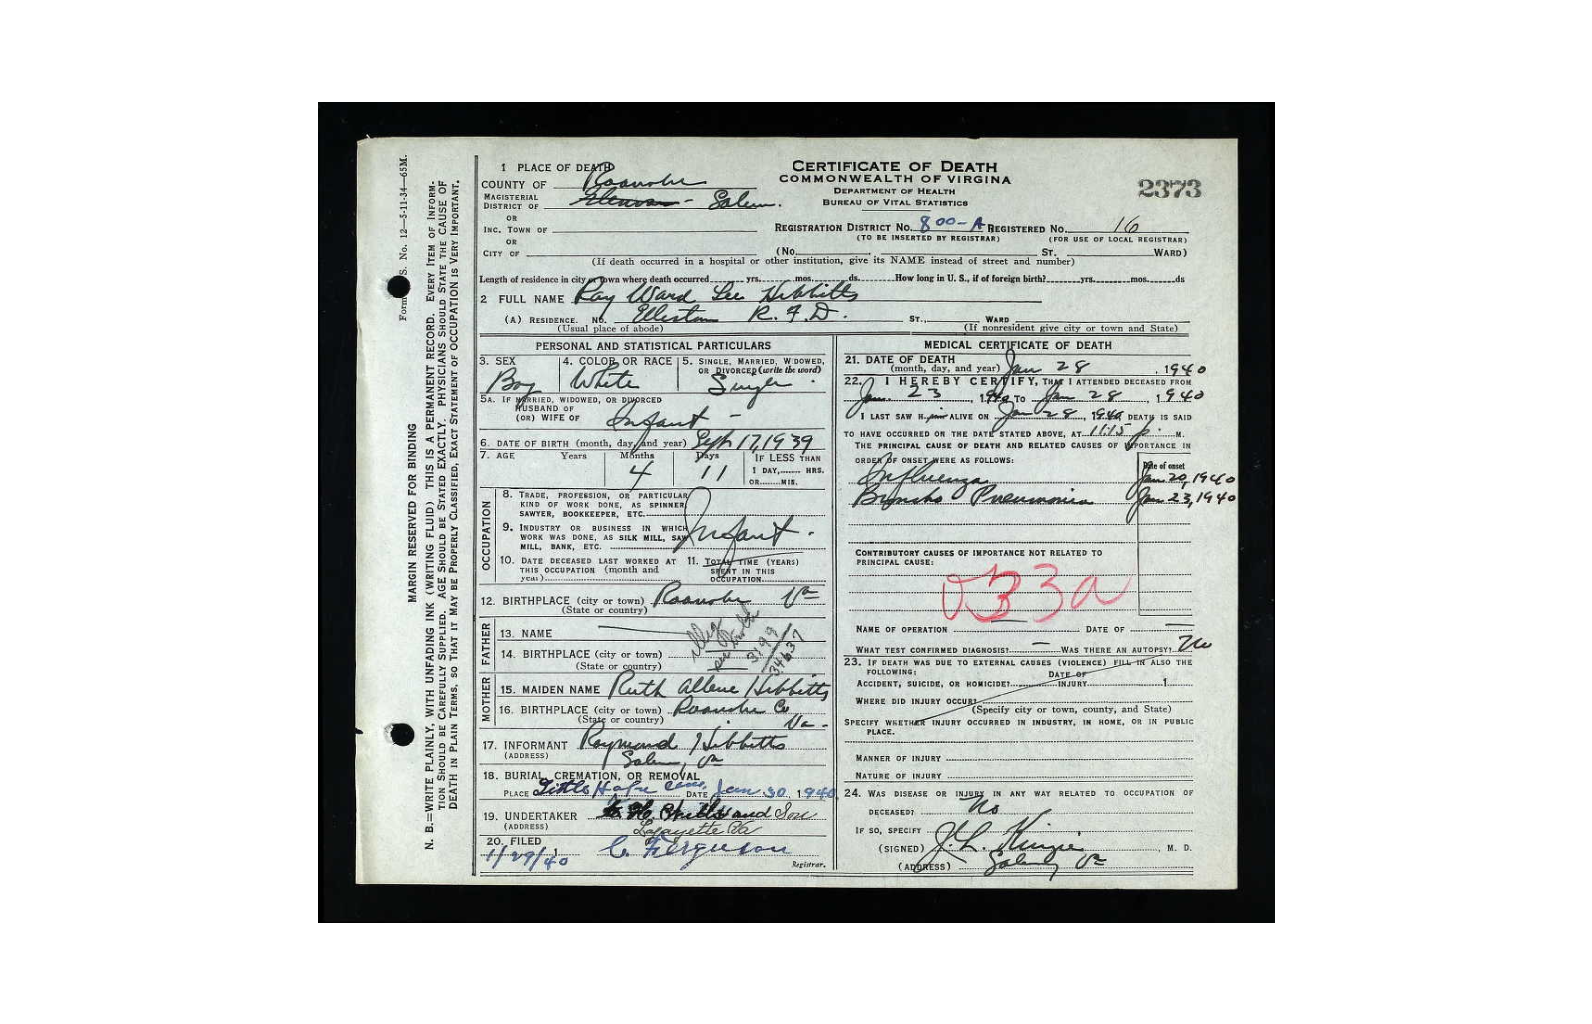 Form V. S. No. 12—5-11-34—65M.
MARGIN RESERVED FOR BINDING
N. B.—WRITE PLAINLY, WITH UNFADING INK (WRITING FLUID) THIS IS A PERMANENT RECORD. EVERY ITEM OF INFORM-
TION SHOULD BE CAREFULLY SUPPLIED. AGE SHOULD BE STATED EXACTLY. PHYSICIANS SHOULD STATE THE CAUSE OF
DEATH IN PLAIN TERMS, SO THAT IT MAY BE PROPERLY CLASSIFIED. EXACT STATEMENT OF OCCUPATION IS VERY IMPORTANT.
1 PLACE OF DEATH
COUNTY OF Roanoke
MAGISTERIAL DISTRICT OF Salem.
OR
INC. TOWN OF
OR
CITY OF
CERTIFICATE OF DEATH
COMMONWEALTH OF VIRGINA
DEPARTMENT OF HEALTH
BUREAU OF VITAL STATISTICS
2373
REGISTRATION DISTRICT No. 800-A REGISTERED No. 16
(TO BE INSERTED BY REGISTRAR) (FOR USE OF LOCAL REGISTRAR)
(No. ST. WARD)
(If death occurred in a hospital or other institution, give its NAME instead of street and number)
Length of residence in city or town where death occurred yrs. mos. ds. How long in U. S., if of foreign birth? yrs. mos. ds
2 FULL NAME Ray Ward Lee Hibbitts
(A) RESIDENCE. No. Elliston R.F.D. ST., WARD
(Usual place of abode) (If nonresident give city or town and State)
PERSONAL AND STATISTICAL PARTICULARS
3. SEX 4. COLOR OR RACE 5. SINGLE, MARRIED, WIDOWED,
OR DIVORCED (write the word)
Boy White Single
5A. IF MARRIED, WIDOWED, OR DIVORCED
HUSBAND OF
(OR) WIFE OF Infant -
6. DATE OF BIRTH (month, day, and year) Sept 17, 1939
7. AGE Years Months Days IF LESS THAN
4 11 1 DAY, HRS.
OR MIN.
OCCUPATION
8. TRADE, PROFESSION, OR PARTICULAR
KIND OF WORK DONE, AS SPINNER
SAWYER, BOOKKEEPER, ETC.
9. INDUSTRY OR BUSINESS IN WHICH
WORK WAS DONE, AS SILK MILL, SAW
MILL, BANK, ETC. Infant.
10. DATE DECEASED LAST WORKED AT
THIS OCCUPATION (month and
year)
11. TOTAL TIME (YEARS)
SPENT IN THIS
OCCUPATION
12. BIRTHPLACE (city or town) Roanoke Va
(State or country)
FATHER
13. NAME
14. BIRTHPLACE (city or town)
(State or country)
3199
34637
MOTHER
15. MAIDEN NAME Ruth Allene Hibbitts
16. BIRTHPLACE (city or town) Roanoke Co
(State or country) Va.
17. INFORMANT Raymond Hibbitts
(ADDRESS) Salem, Va
18. BURIAL, CREMATION, OR REMOVAL
PLACE Hope Cem. DATE Jan 30, 1940
19. UNDERTAKER and Son
(ADDRESS) Lafayette Va
20. FILED
1/29/40 C. Ferguson
Registrar.
MEDICAL CERTIFICATE OF DEATH
21. DATE OF DEATH
(month, day, and year) Jan 28, 1940
22. I HEREBY CERTIFY, THAT I ATTENDED DECEASED FROM
Jan. 23, 1940 TO Jan 28, 1940
I LAST SAW H im ALIVE ON Jan 28, 1940 DEATH IS SAID
TO HAVE OCCURRED ON THE DATE STATED ABOVE, AT 11:15 p. M.
THE PRINCIPAL CAUSE OF DEATH AND RELATED CAUSES OF IMPORTANCE IN
ORDER OF ONSET WERE AS FOLLOWS: Date of onset
Influenza Jan 20, 1940
Pneumonia Jan 23, 1940
CONTRIBUTORY CAUSES OF IMPORTANCE NOT RELATED TO
PRINCIPAL CAUSE:
33a
NAME OF OPERATION DATE OF
WHAT TEST CONFIRMED DIAGNOSIS? WAS THERE AN AUTOPSY? No
23. IF DEATH WAS DUE TO EXTERNAL CAUSES (VIOLENCE) FILL IN ALSO THE
FOLLOWING: DATE OF
ACCIDENT, SUICIDE, OR HOMICIDE? INJURY 1
WHERE DID INJURY OCCUR?
(Specify city or town, county, and State)
SPECIFY WHETHER INJURY OCCURRED IN INDUSTRY, IN HOME, OR IN PUBLIC
PLACE.
MANNER OF INJURY
NATURE OF INJURY
24. WAS DISEASE OR INJURY IN ANY WAY RELATED TO OCCUPATION OF
DECEASED? No
IF SO, SPECIFY
(SIGNED) J. L. Kinzie, M. D.
(ADDRESS) Salem, Va